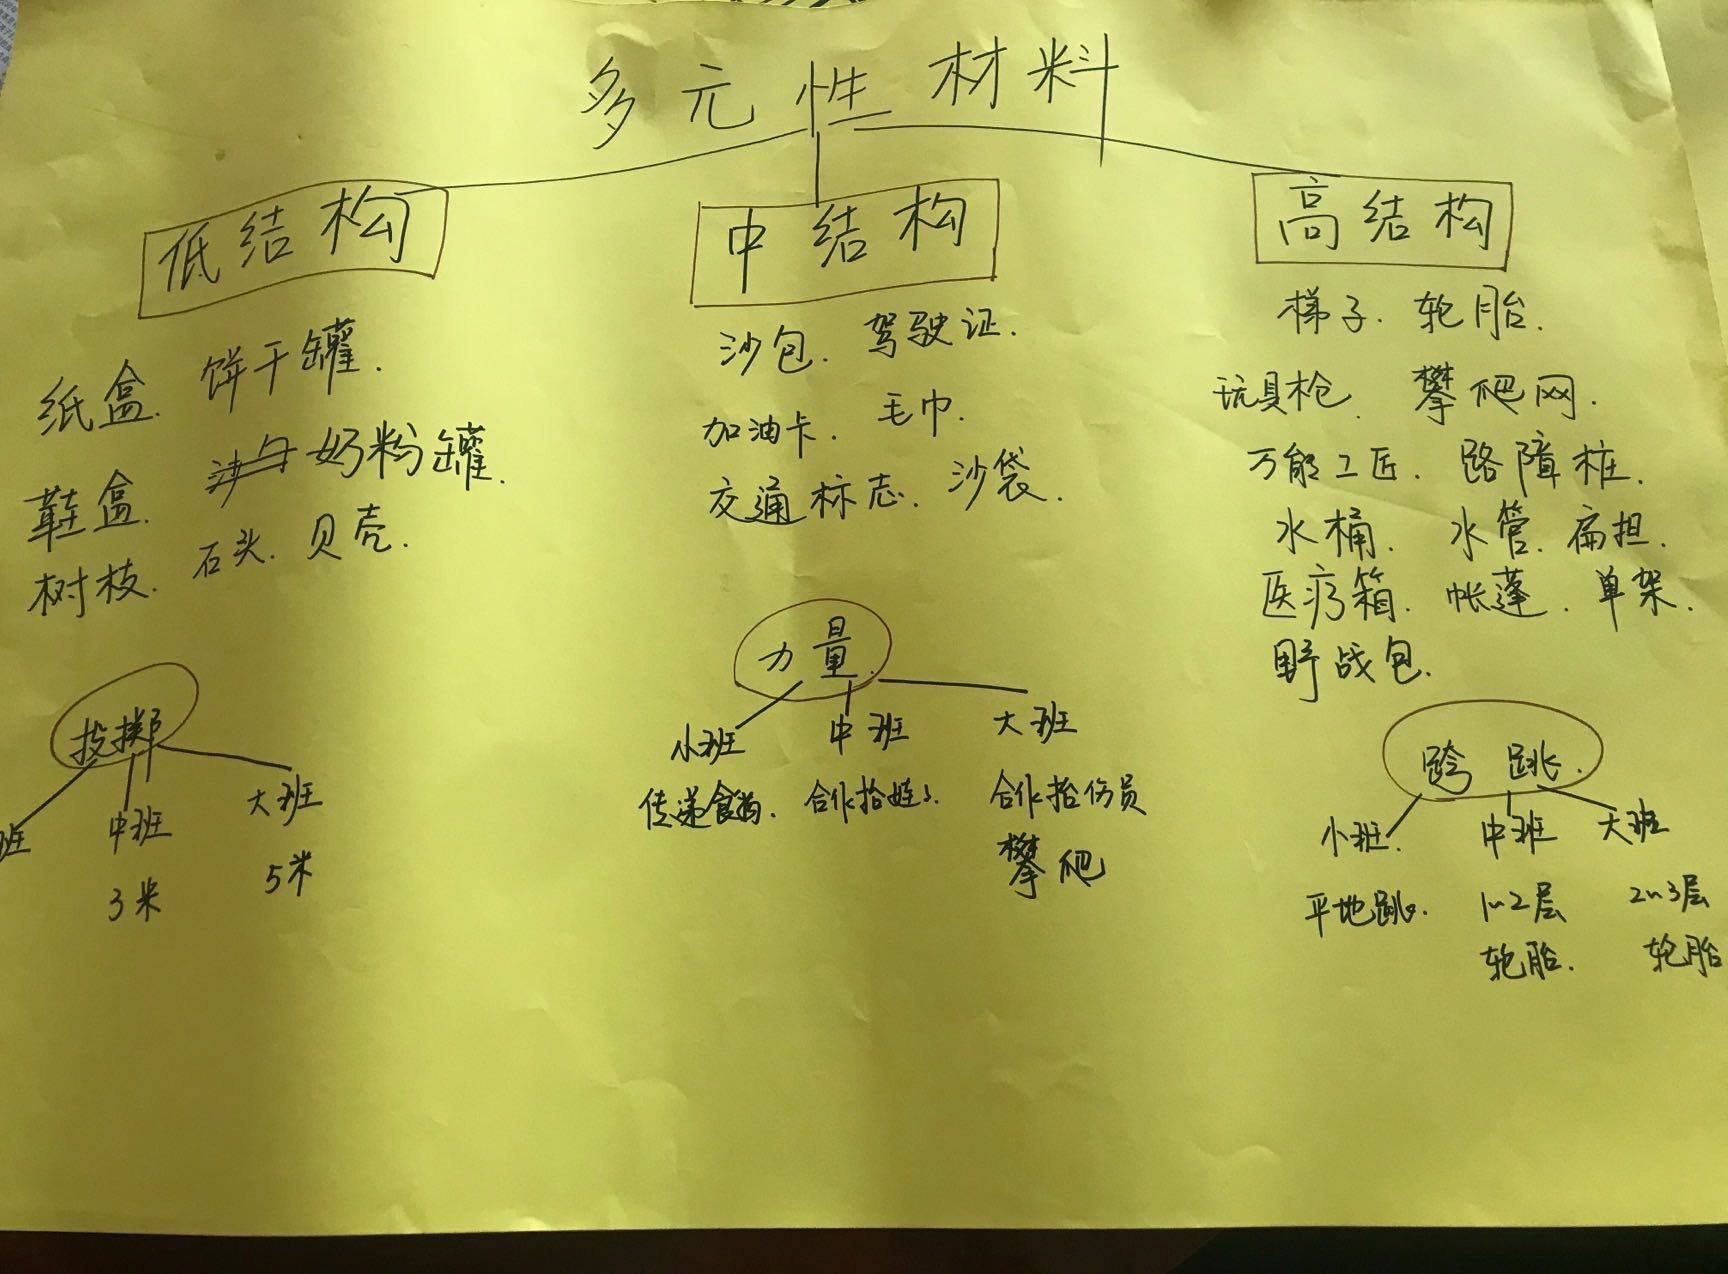 多元性材料
低结构
纸盒. 饼干罐.
鞋盒. 奶粉罐.
树枝. 石头. 贝壳.
投掷
班 中班 大班
3米 5米
中结构
沙包. 驾驶证.
加油卡. 毛巾.
交通标志. 沙袋.
力量.
小班 中班 大班
传递食物. 合作抬 合作抬伤员
攀爬
高结构
梯子. 轮胎.
玩具枪. 攀爬网.
万能工匠. 路障桩.
水桶. 水管. 扁担.
医疗箱. 帐篷. 单架.
野战包.
跨跳.
小班. 中班 大班
平地跳. 1~2层 2~3层
轮胎. 轮胎